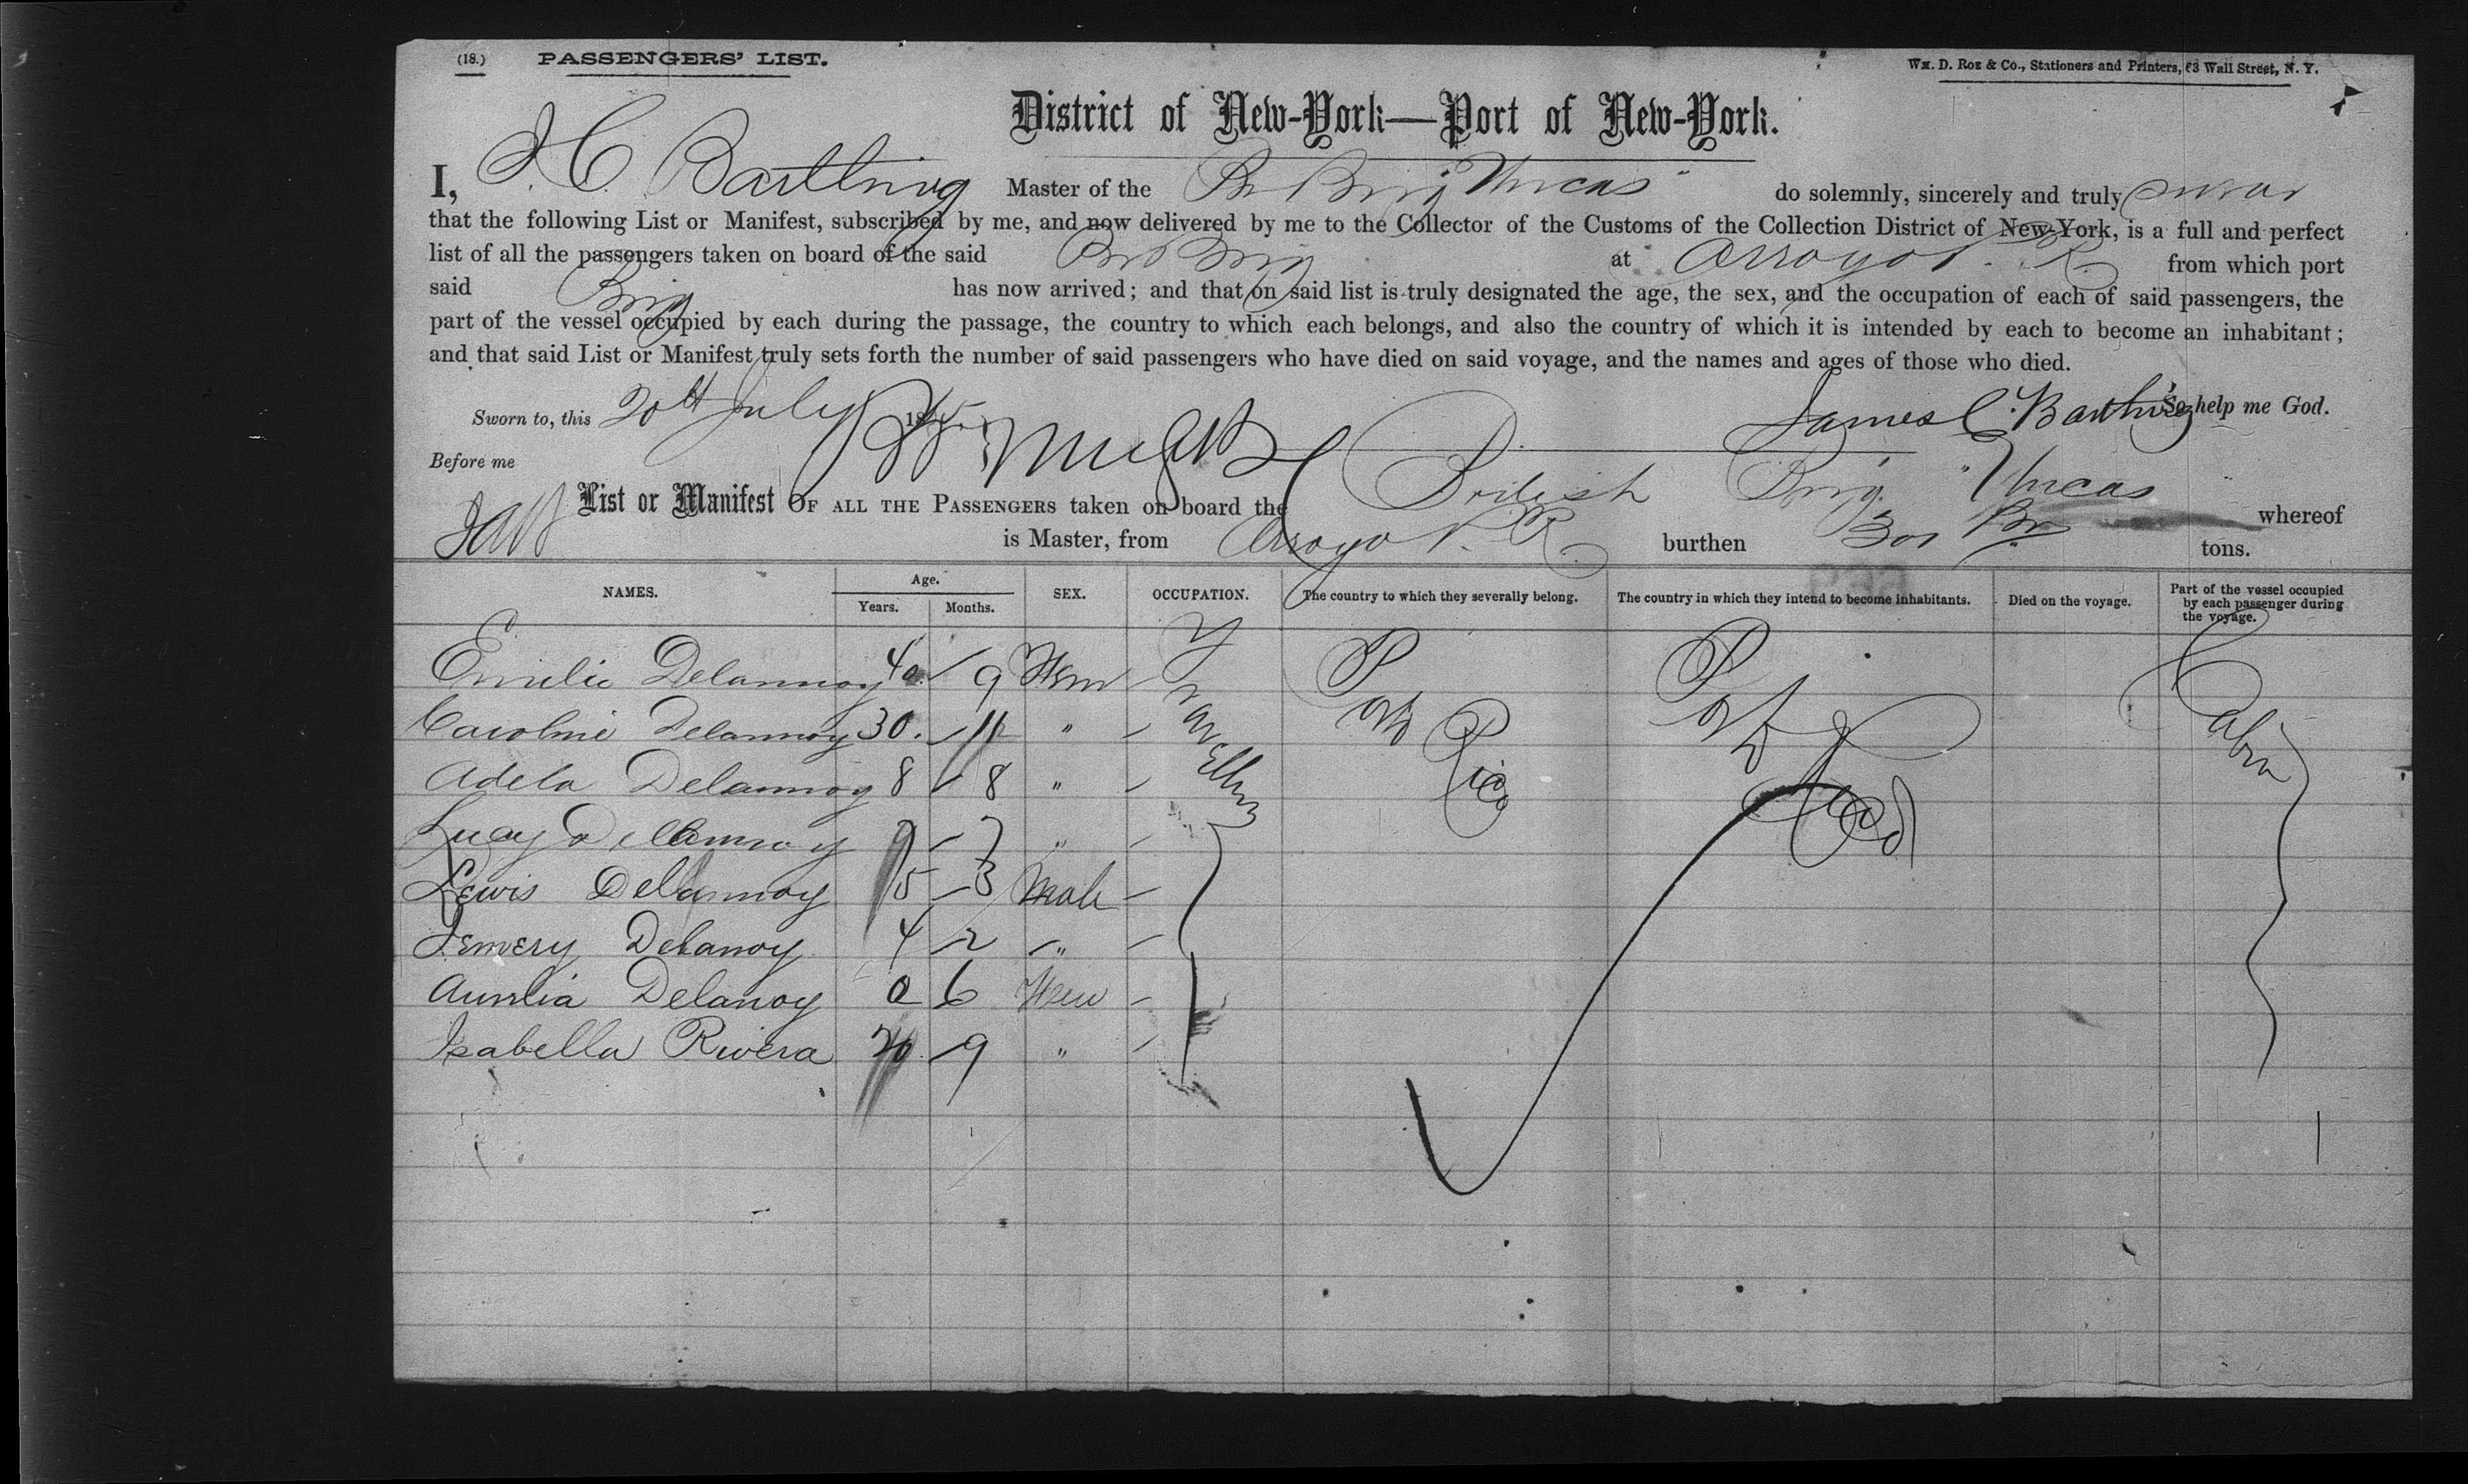 (18.) PASSENGERS' LIST. Wm. D. Roe & Co., Stationers and Printers, 63 Wall Street, N. Y.
District of New-York—Port of New-York.
I, J. C. Barthing Master of the Br Brig Uncas do solemnly, sincerely and truly swear
that the following List or Manifest, subscribed by me, and now delivered by me to the Collector of the Customs of the Collection District of New-York, is a full and perfect
list of all the passengers taken on board of the said Br Brig at Arroyo P. R. from which port
said Brig has now arrived; and that on said list is truly designated the age, the sex, and the occupation of each of said passengers, the
part of the vessel occupied by each during the passage, the country to which each belongs, and also the country of which it is intended by each to become an inhabitant;
and that said List or Manifest truly sets forth the number of said passengers who have died on said voyage, and the names and ages of those who died.
Sworn to, this 20th July 18 James C. Barthing So help me God.
Before me
List or Manifest OF ALL THE PASSENGERS taken on board the British Brig "Uncas whereof
is Master, from Arroyo P. R. burthen tons.
NAMES. Age. Years. Months. SEX. OCCUPATION. The country to which they severally belong. The country in which they intend to become inhabitants. Died on the voyage. Part of the vessel occupied by each passenger during the voyage.
Emilie Delannoy 40 9 Fem Travellers Porto Rico Porto Rico Cabin
Caroline Delannoy 30. 11 "
Adela Delannoy 8 8 "
Lucy Delannoy 7 "
Lewis Delannoy 5 3 Male
Emery Delanoy 4 2 "
Aurelia Delanoy 0 6 Fem
Isabella Rivera 20 9 "